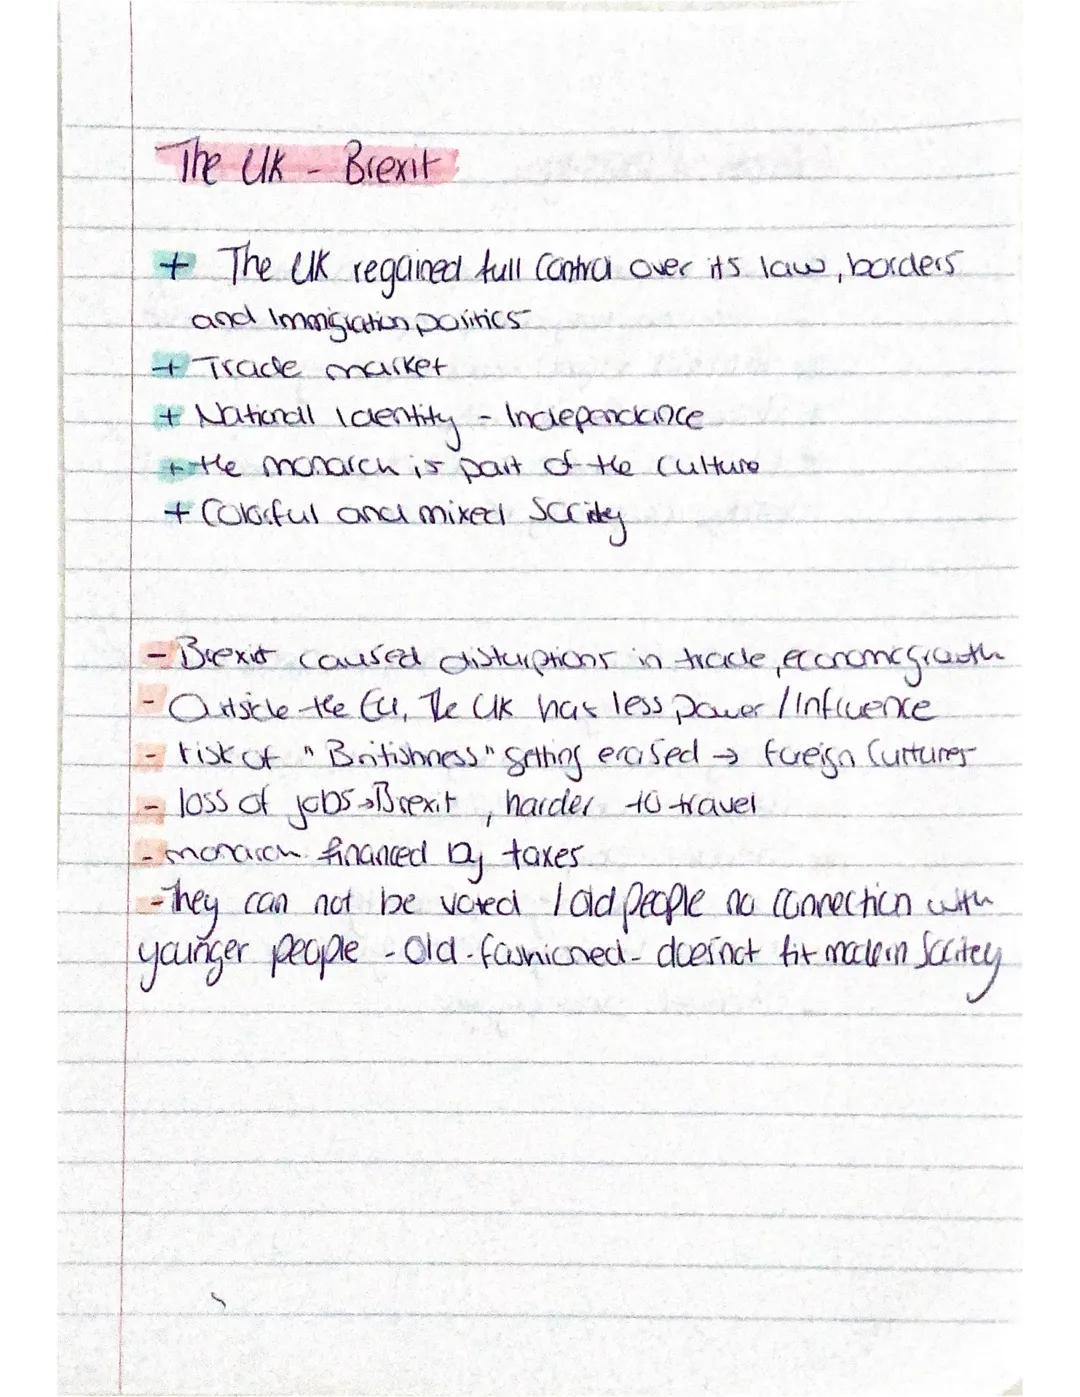 The UK - Brexit
+ The UK regained full control over its law, borders
and Immigration politics
+ Trade market
+ Nationall Identity - Independance
+ the monarch is part of the culture
+ Colorful and mixed Socity
- Brexit caused disturptions in trade, economic growth
- Outside the EU, The UK has less power / Influence
- risk of "Britishness" getting erased → foreign Cultures
- loss of jobs → Brexit, harder to travel
- monarch financed by taxes
- They can not be voted / old people no connection with
younger people - old-fashioned - doesnot fit modern Socitey